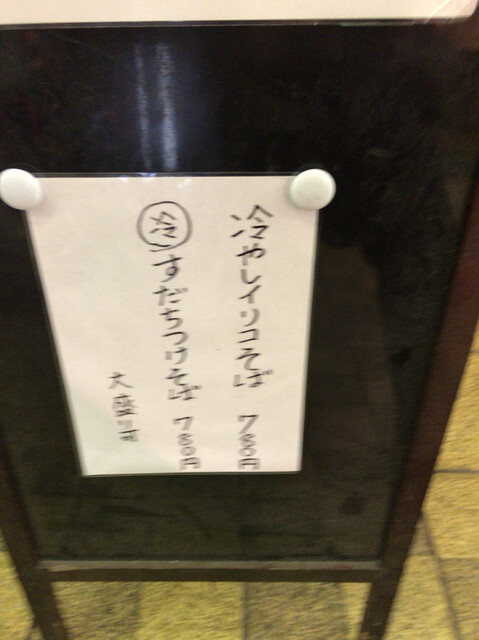 冷やしイリコそば 780円
冷 すだちつけそば 780円
大盛り可